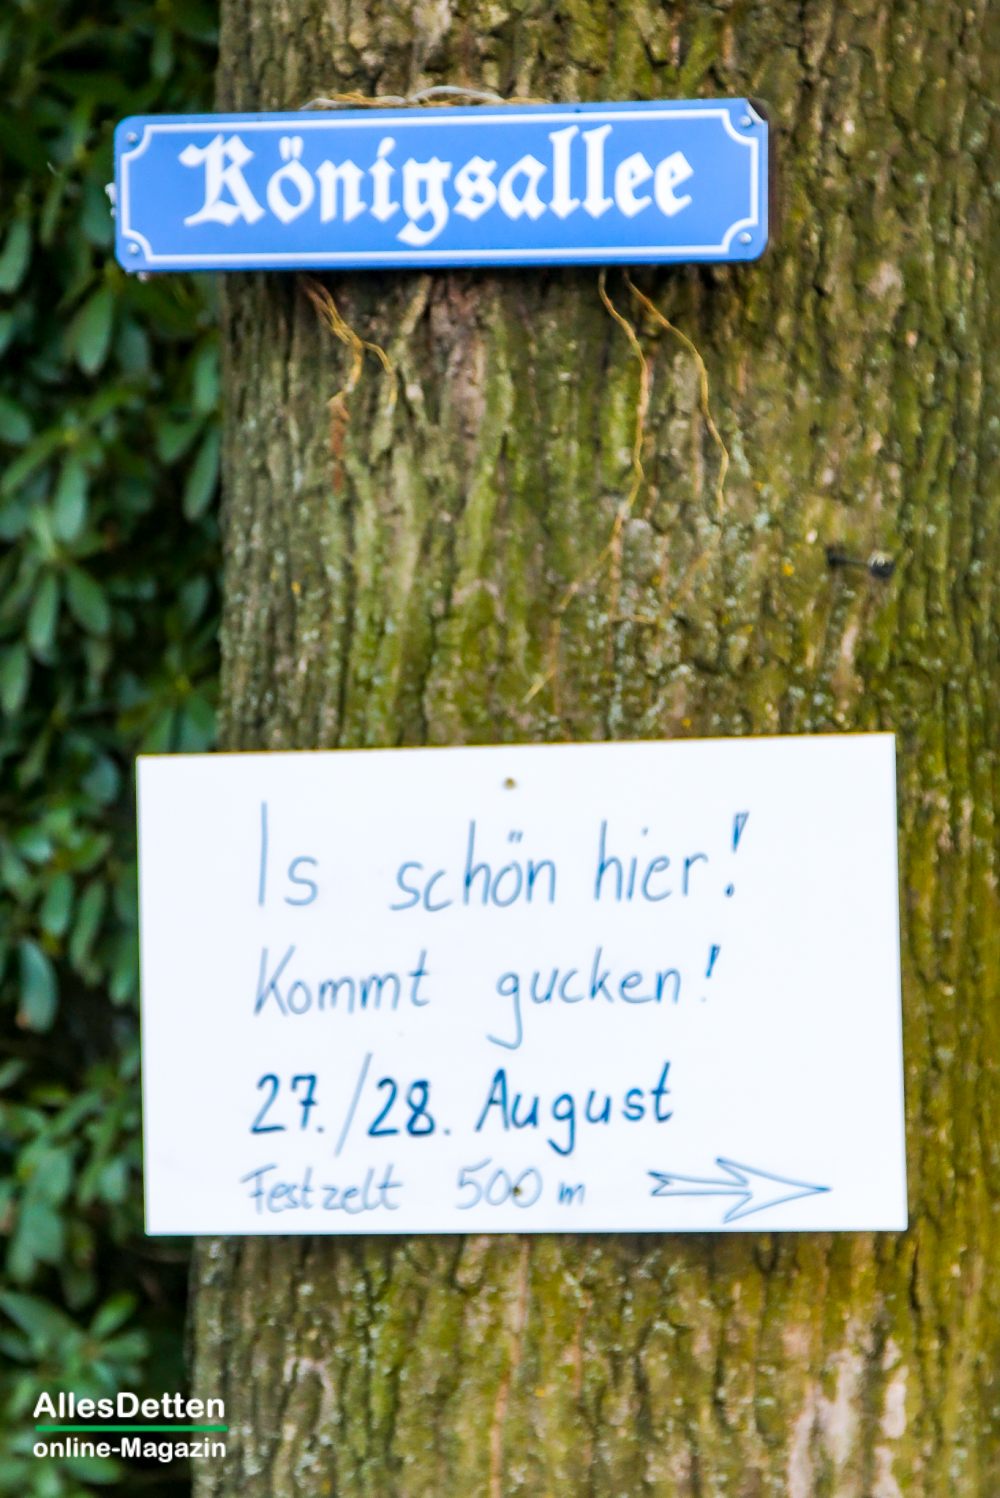 Königsallee
Is schön hier!
Kommt gucken!
27./28. August
Festzelt 500 m
AllesDetten
online-Magazin